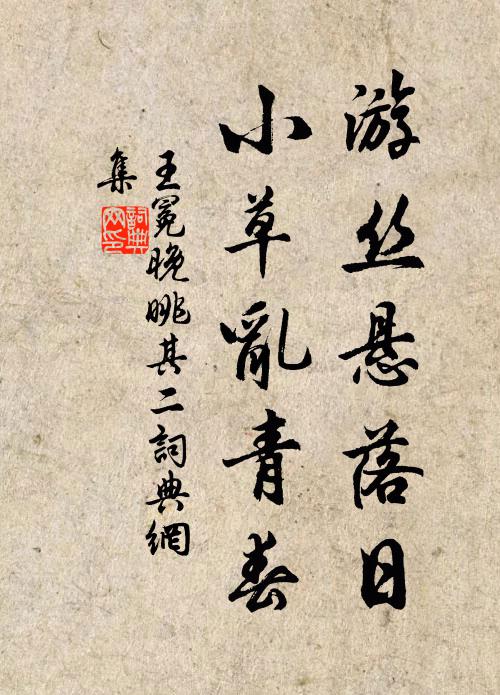 游丝悬落日
小草亂青春
王冕晚眺其二詞典網
集
詞典
网印